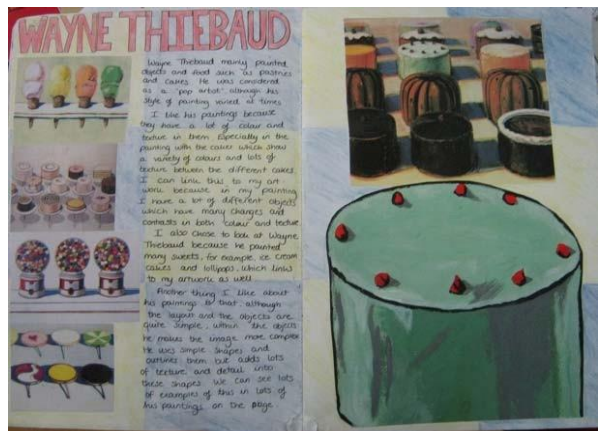 WAYNE THIEBAUD
Wayne Thiebaud mainly painted
objects and food such as pastries
and cakes. He was considered
as a 'pop artist', although his
style of painting varied at times
I like his paintings because
they have a lot of colour and
texture in them. Especially in the
painting with the cakes which show
a variety of colours and lots of
texture between the different cakes.
I can link this to my art
work because in my painting
I have a lot of different objects
which have many changes and
contrasts in both colour and texture.
I also chose to look at Wayne
Thiebaud because he painted
many sweets, for example, ice cream
cakes and lollipops, which links
to my artwork as well.
Another thing I like about
his paintings is that, although
the layout and the objects are
quite simple, within the objects
he makes the image more complex
He uses simple shapes and
outlines them but adds lots
of texture and detail into
these shapes. We can see lots
of examples of this in lots of
his paintings on the page.